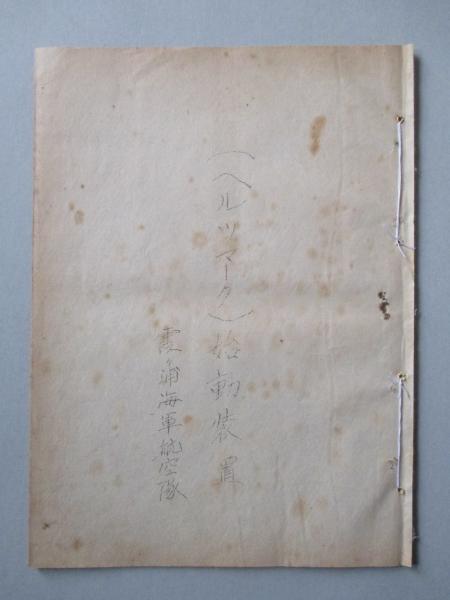 (ヘルツマーク)始動装置
霞ヶ浦海軍航空隊